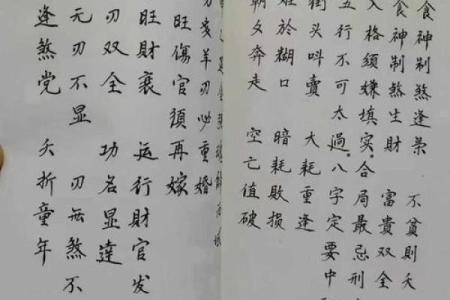 食神制煞逢枭 不贫则夭
食神制煞生财 富贵双全
入格须嫌填实。合局最忌刑
五行不可太過。八字定要中
街头叫卖 大耗重逢
於糊口 暗耗败损
朝夕奔走 空亡值破
多羊刃必重婚
旺傷官須再嫁
旺財衰 运行財官发
刃双全 功名显達
无刃不显 刃無煞不
逢煞党 夭折童年